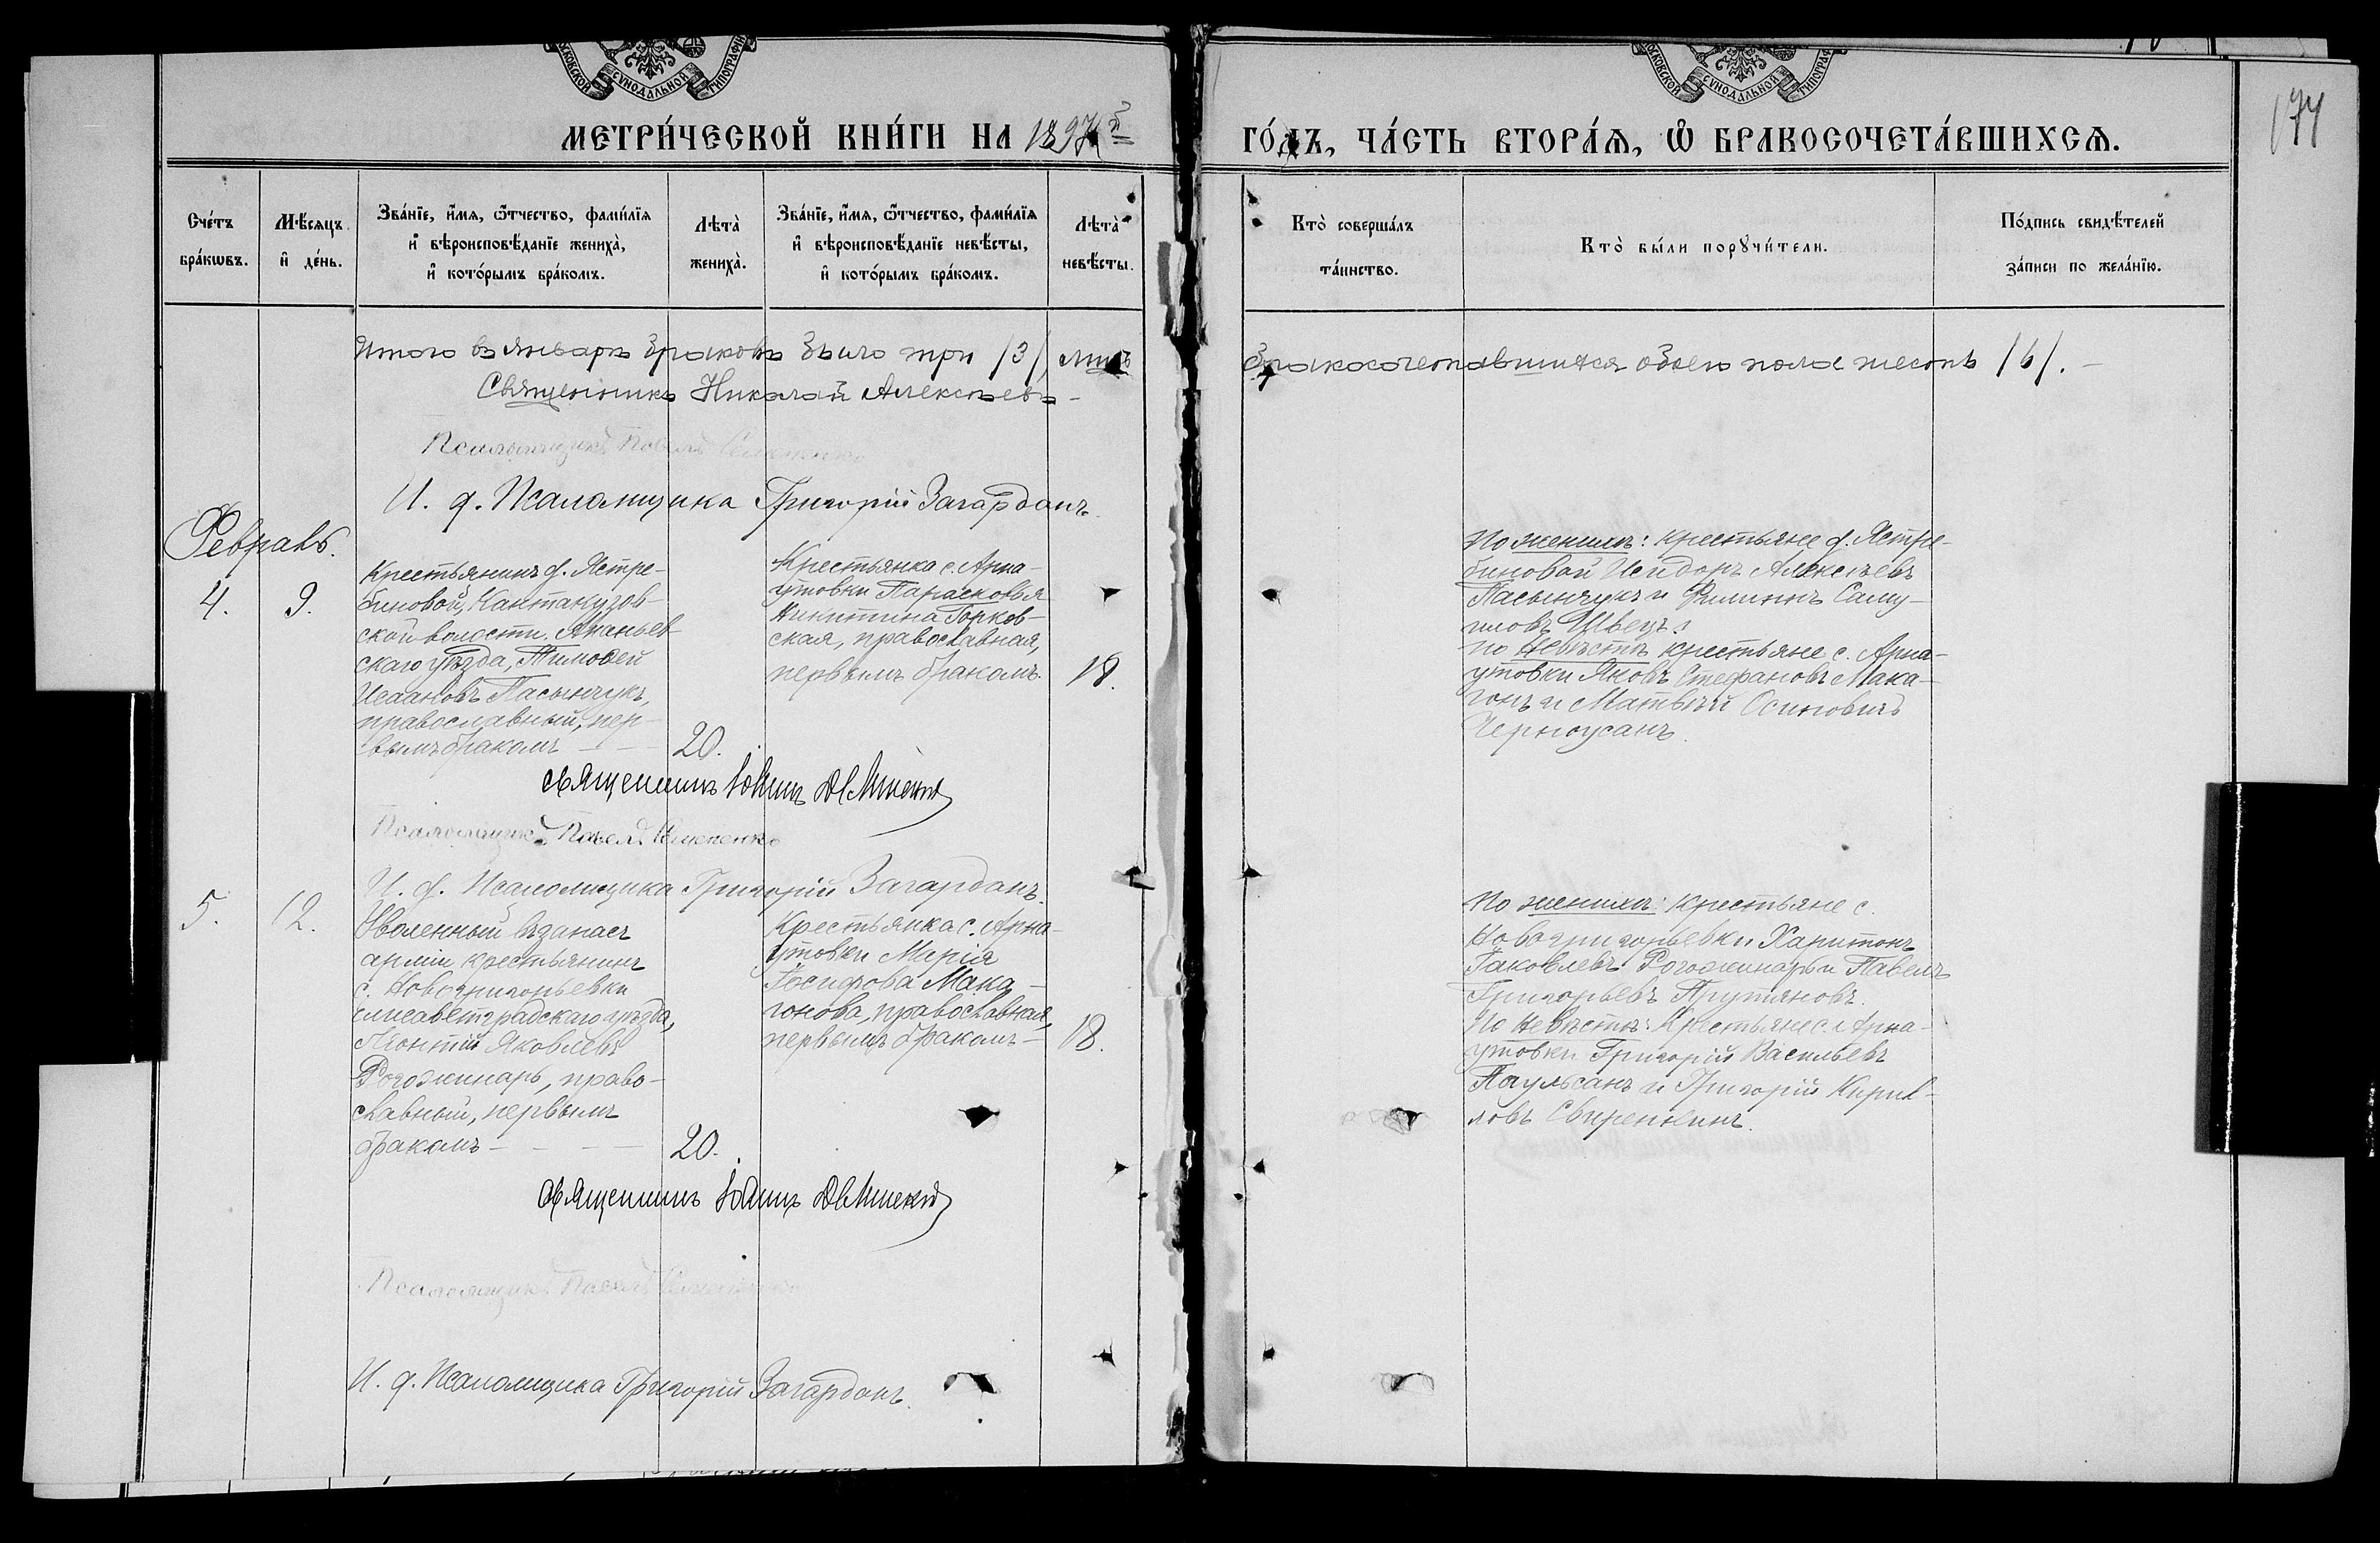 МОСКОВСКОЙ СѴНОДАЛЬНОЙ ТИПОГРАФІИ
МОСКОВСКОЙ СѴНОДАЛЬНОЙ ТИПОГРАФІИ
174
МЕТРИ́ЧЕСКОЙ КНИ́ГИ НА 1897й
ГО́ДЪ, ЧА́СТЬ ВТОРА́Я, Ѽ БРАКОСОЧЕТА́ВШИХСЯ.
Сче́тъ бра́кѡвъ.
Мѣ́сяцъ и҆ де́нь.
Зва́нїе, и҆́мѧ, ѻ҆́тчество, фами́лїѧ
и҆ вѣроисповѣ́данїе жениха̀,
и҆ кото́рымъ бра́комъ.
Лѣта̀ жениха̀.
Зва́нїе, и҆́мѧ, ѻ҆́тчество, фами́лїѧ
и҆ вѣроисповѣ́данїе невѣ́сты,
и҆ кото́рымъ бра́комъ.
Лѣта̀ невѣ́сты.
Кто̀ соверша́лъ та́инство.
Кто̀ бы́ли порꙋчи́тели.
По́дпись свидѣ́телей за́писи по жела́нїю.
Итого въ Январѣ браковъ было три /3/, лицъ
бракосочетавшихся обоего пола шесть /6/. —
Священникъ Николай Алексѣевъ —
Псаломщикъ Павелъ
И. д. Псаломщика Григорій Загарданъ.
Февраль.
4.
9.
Крестьянинъ д. Ястре-
биновой, Кантакузов-
ской волости Ананьев-
скаго уѣзда, Тимоѳей
Исааковъ Пасынчукъ,
православный, пер-
вымъ бракомъ — —
20.
Крестьянка с. Арна-
утовки Парасковья
Никитина Горков-
ская, православная,
первымъ бракомъ.
18.
По женихѣ: крестьяне д. Ястре-
биновой Исидоръ Алексѣевъ
Пасынчукъ и Филиппъ Саму-
иловъ Швецъ.
по невѣстѣ крестьяне с. Арна-
утовки Яковъ Стефановъ Мака-
гонъ и Матвѣй Осиповичъ
Черноусанъ.
Священникъ Іоаннъ
Псаломщикъ Павелъ
И. д. Псаломщика Григорій Загарданъ.
5.
12.
Уволенный въ запасъ
арміи крестьянинъ
с. Новогригорьевки
Елисаветградскаго уѣзда,
Леонтій Яковлевъ
Рогожинарь, право-
славный, первымъ
бракомъ — — —
20.
Крестьянка с. Арна-
утовки Марія
Іосифова Мака-
гонова, православная,
первымъ бракомъ —
18.
По женихѣ: крестьяне с.
Новогригорьевки Харитонъ
Іаковлевъ Рогожинарь и Павелъ
Григорьевъ Прутяновъ.
По невѣстѣ: Крестьяне с. Арна-
утовки Григорій Васильевъ
Паульсанъ и Григорій Кирил-
ловъ Свиренкинъ.
Священникъ Іоаннъ
Псаломщикъ Павелъ
И. д. Псаломщика Григорій Загарданъ.